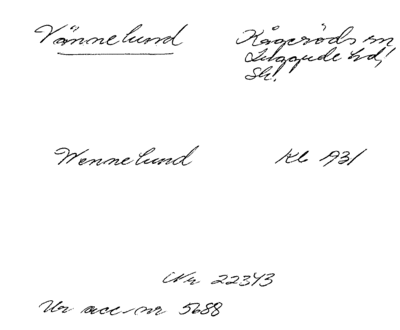 Vännelund
Kågeröds sn
Luggude hd,
Sk!
Wennelund
Kl 1931
Nr 22343
Ur acc.nr 5688